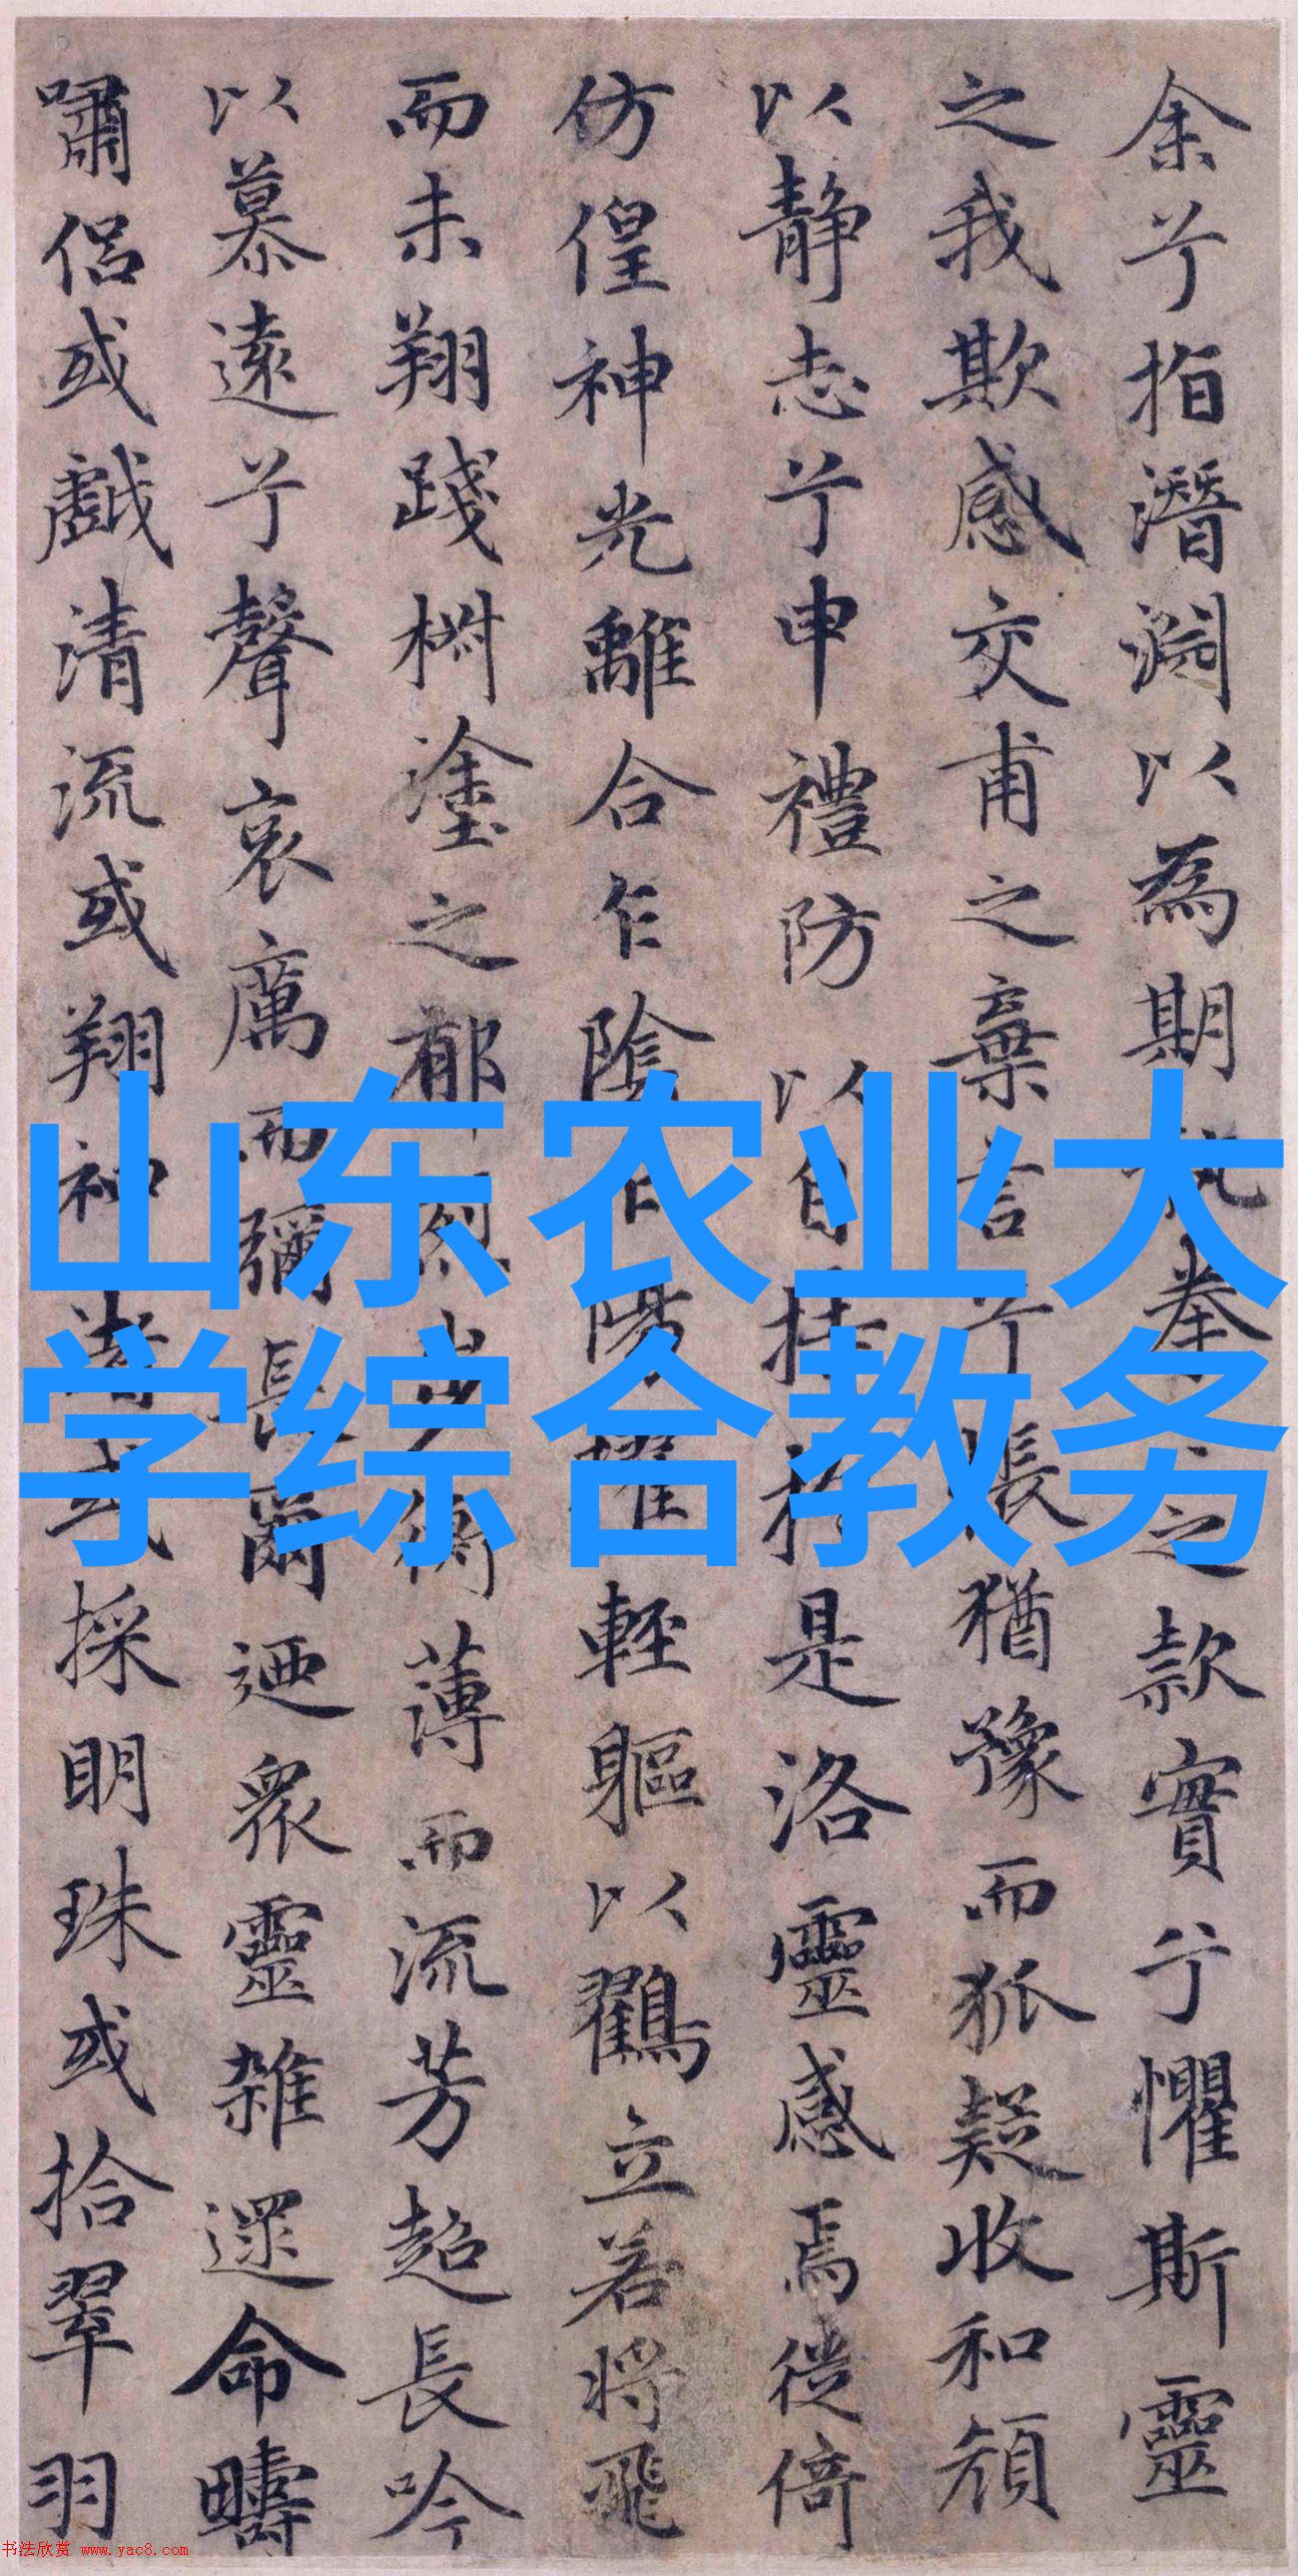 余兮指潛淵以為期之款實兮懼斯靈
之我欺感交甫之棄言兮悵猶豫而狐疑收和顏
以靜志兮申禮防以自持於是洛靈感焉徙倚
仿偟神光離合乍陰乍陽擢輕軀以鶴立若將飛
而未翔踐椒塗之郁烈步蘅薄而流芳超長吟
以慕遠兮聲哀厲而彌長爾迺眾靈雜遝命疇
嘯侶或戲清流或翔神渚或採明珠或拾翠羽
山东农业大
学综合教务
书法欣赏 www.yac8.com